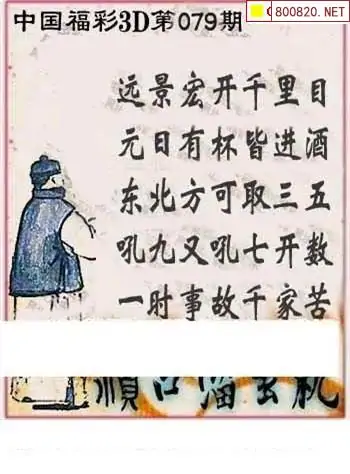 中国福彩3D第079期
800820.NET
远景宏开千里目
元日有杯皆进酒
东北方可取三五
吼九又吼七开数
一时事故千家苦